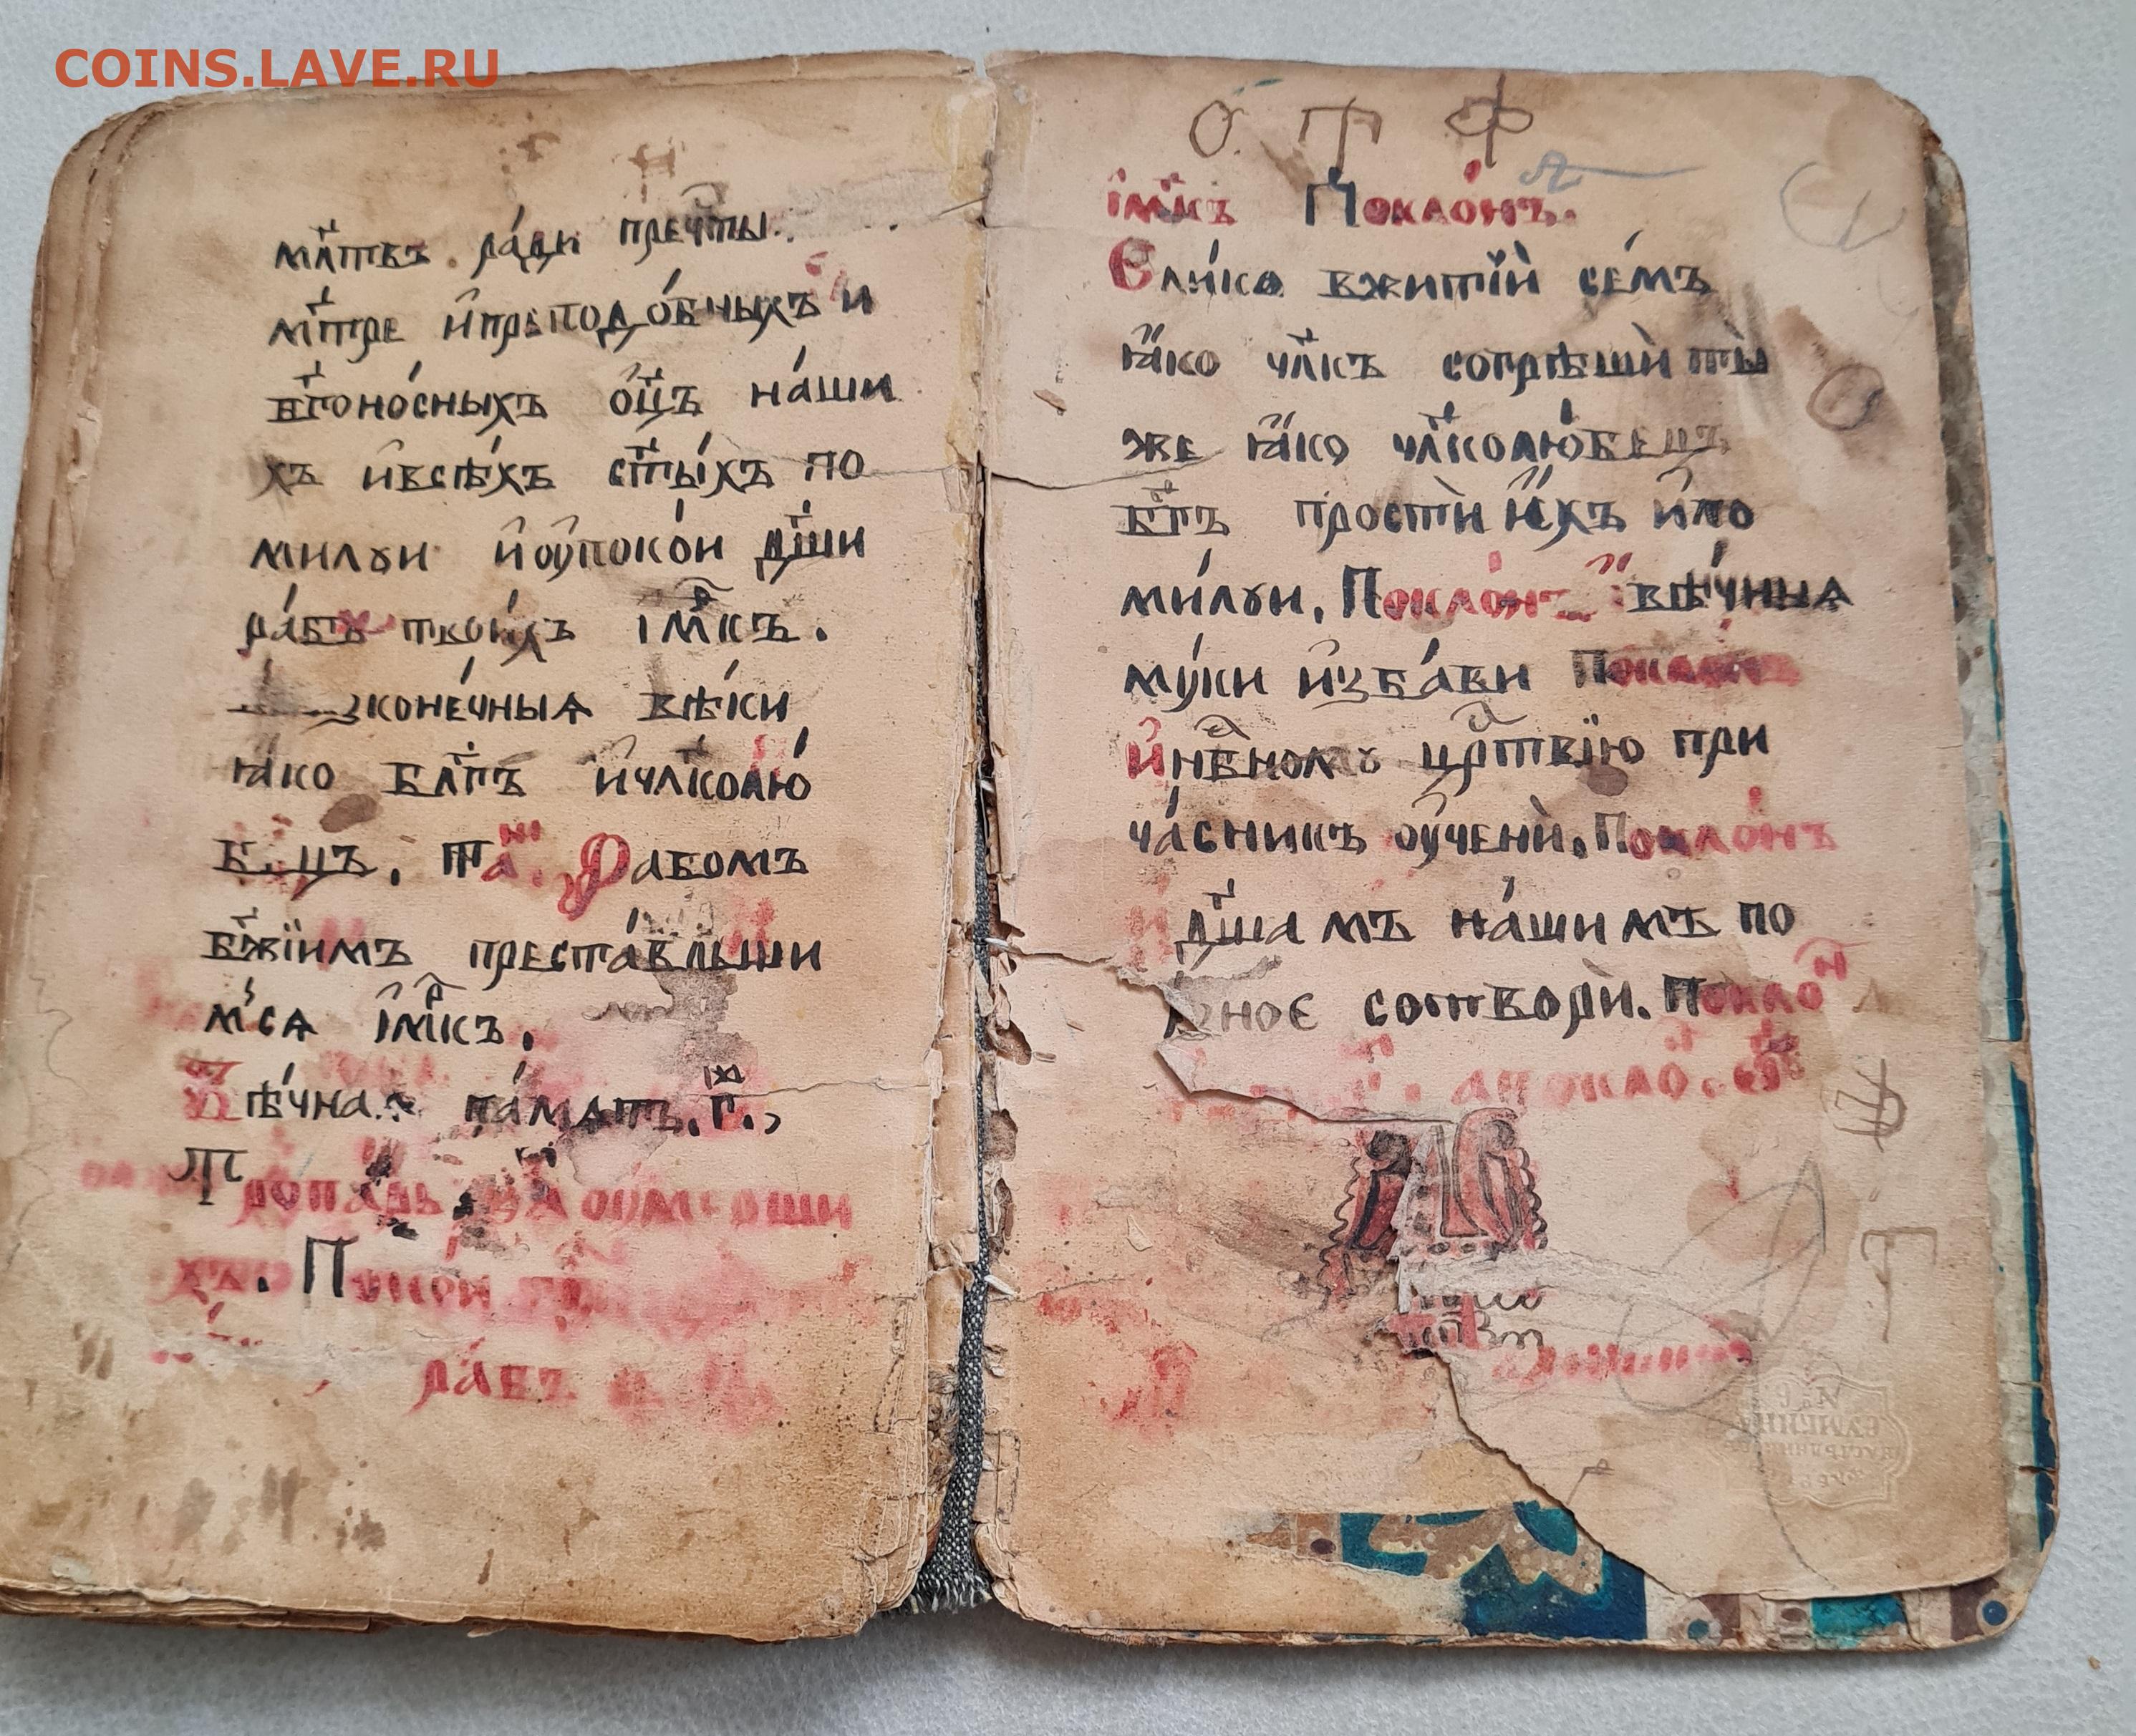 COINS.LAVE.RU
мл҃твъ ра́ди преч҃ты
мт҃ре и҆препод о́бныхъ и
бг҃оно́сныхъ ѻ҆ц҃ъ на́ши
хъ и҆всѣ́хъ ст҃ы́хъ по
милꙋи и҆ оу҆поко́и дш҃и
ра́бъ твои́хъ і҆мⷬ҇къ.
зконе́чныѧ вѣ́ки
ꙗ҆́ко бл҃гъ и҆чл҃колю́
б ць, Таⷤ. Рабомъ
бж҃іимъ преста́вльши
мсѧ і҆мⷬ҇къ,
Вѣ́чна па́мѧть. г҃.,
Тропарь за оумерши
хъ. Покои
ра́бъ
О П Ф
і҆м҃къ Покло́нъ.
Ели́ко вжитїѝ се́мъ
ꙗ҆́ко чл҃къ согрѣшѝ ты
же ꙗ҆́ко чл҃колю́бецъ
бг҃ъ простѝ и҆́хъ и҆по
ми́лꙋи, Покло́нъ вѣ́чныѧ
мꙋ́ки и҆зба́ви Покло́нъ
И҆нбⷭ҇номꙋ црⷭ҇твїю при
ча́сникъ оу҆ченѝ, Покло́нъ
И дш҃а мъ на́ши мъ по
зное сотворѝ. Поклоⷩ҇
СУМКИНА
№ 6